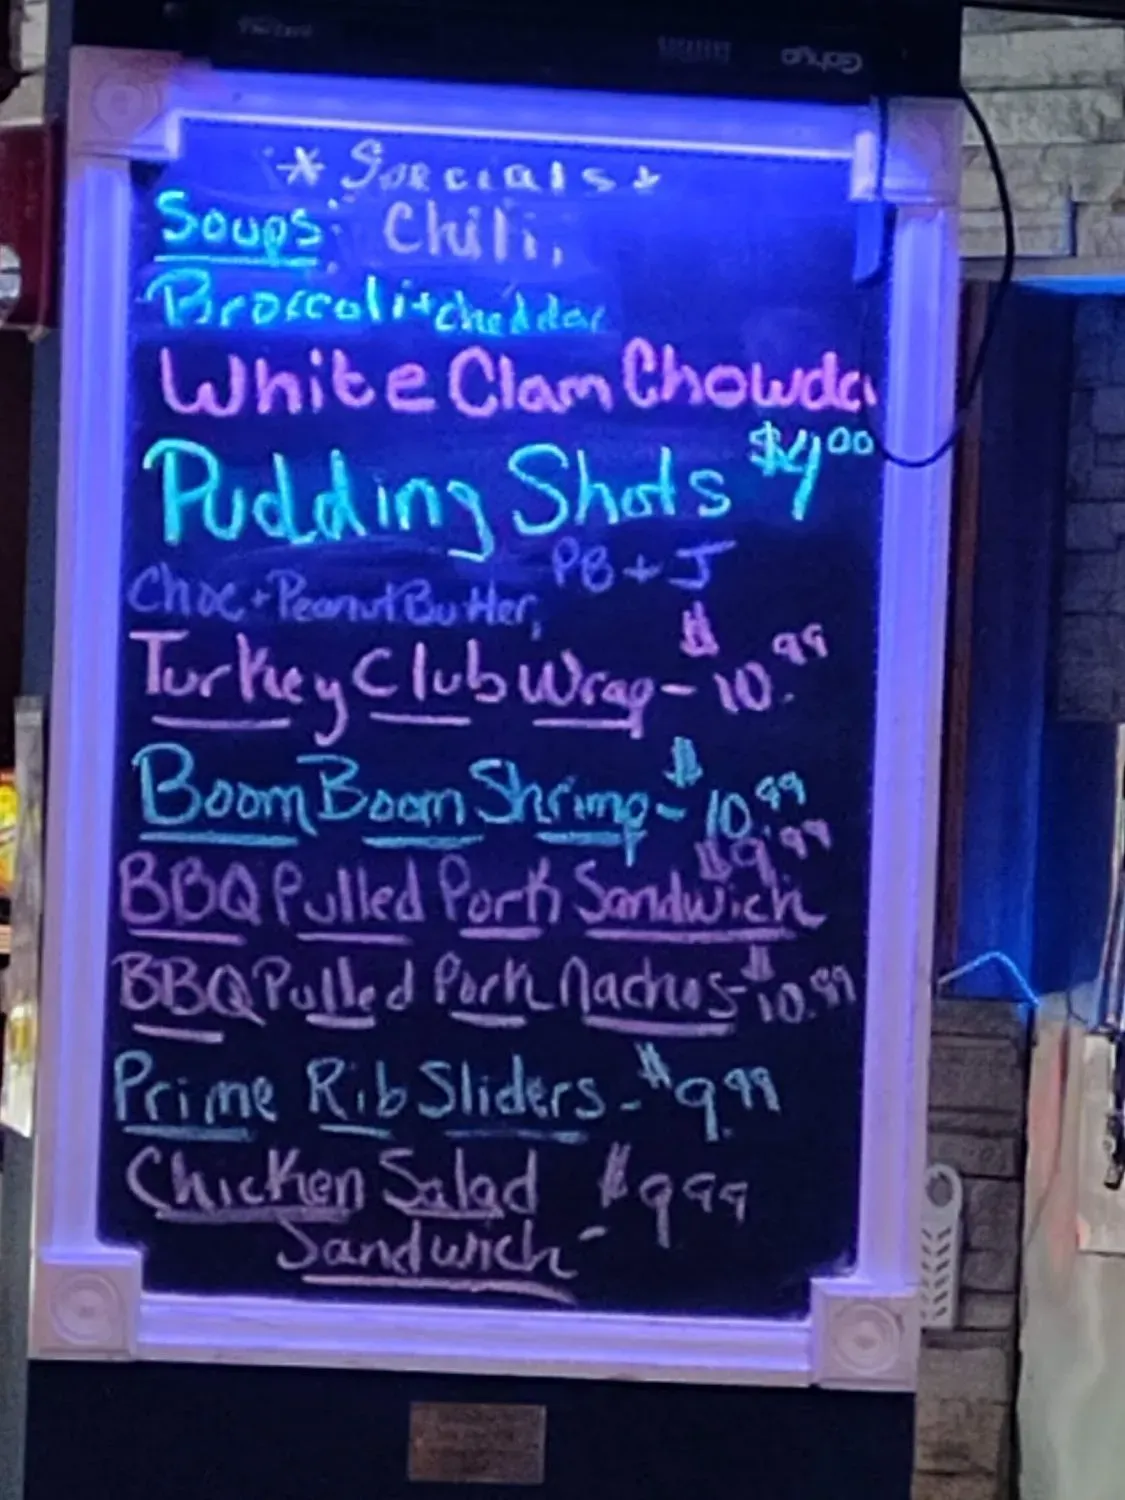 * Specials *
Soups: Chili,
Broccoli + cheddar
White Clam Chowda
Pudding Shots $4.00
Choc + Peanut Butter, PB + J
Turkey Club Wrap - $10.99
Boom Boom Shrimp - $10.99
BBQ Pulled Pork Sandwich $9.99
BBQ Pulled Pork Nachos - $10.99
Prime Rib Sliders - $9.99
Chicken Salad $9.99
Sandwich -